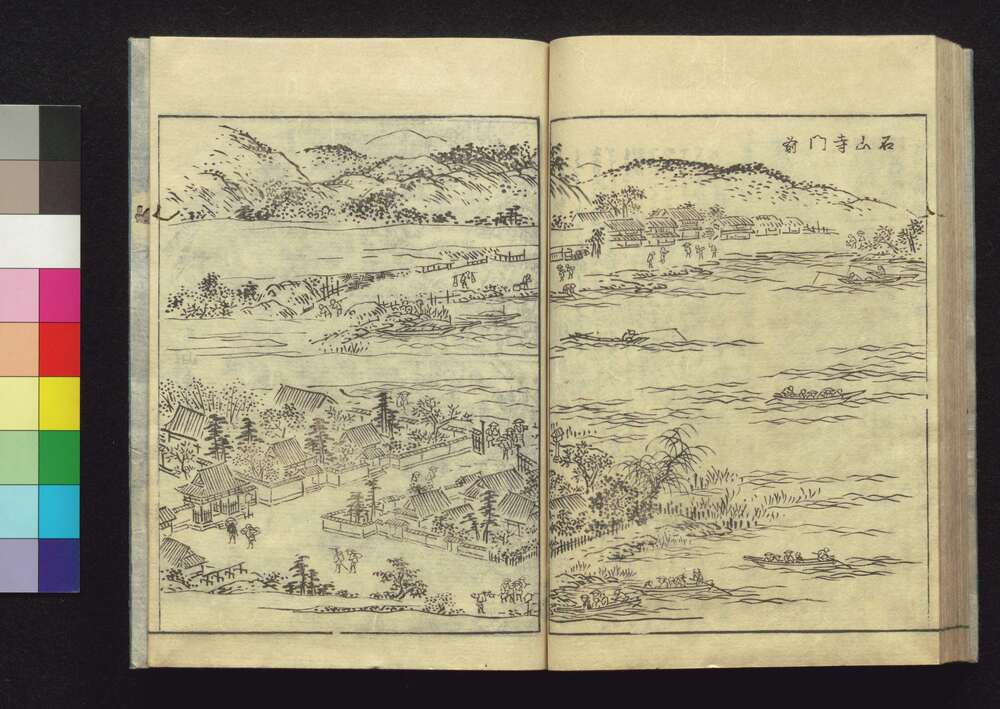 石山寺門前